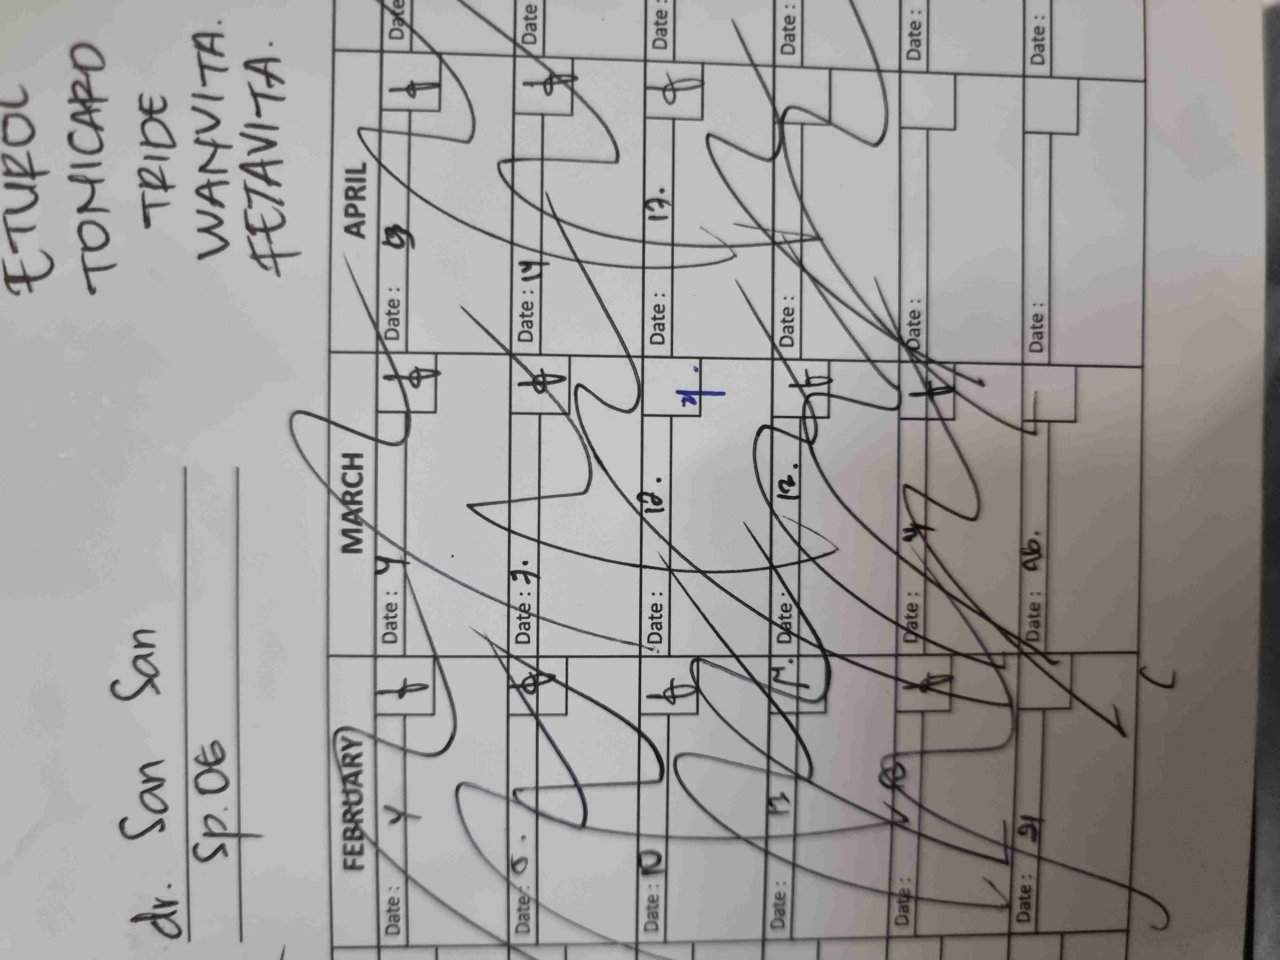 dr. San San
Sp.OG
ETUROL
TONICARD
TRIDE
WANVITA.
FETAVITA.
FEBRUARY MARCH APRIL
Date: 4 Date: 4 Date: Date
Date: 5. Date: 7. Date: 14 Date
Date: 10 Date: 12. Date: 17. Date:
Date: 13 Date: 13. Date: Date:
Date: Date: Date: Date:
Date: 21 Date: 26. Date: Date: